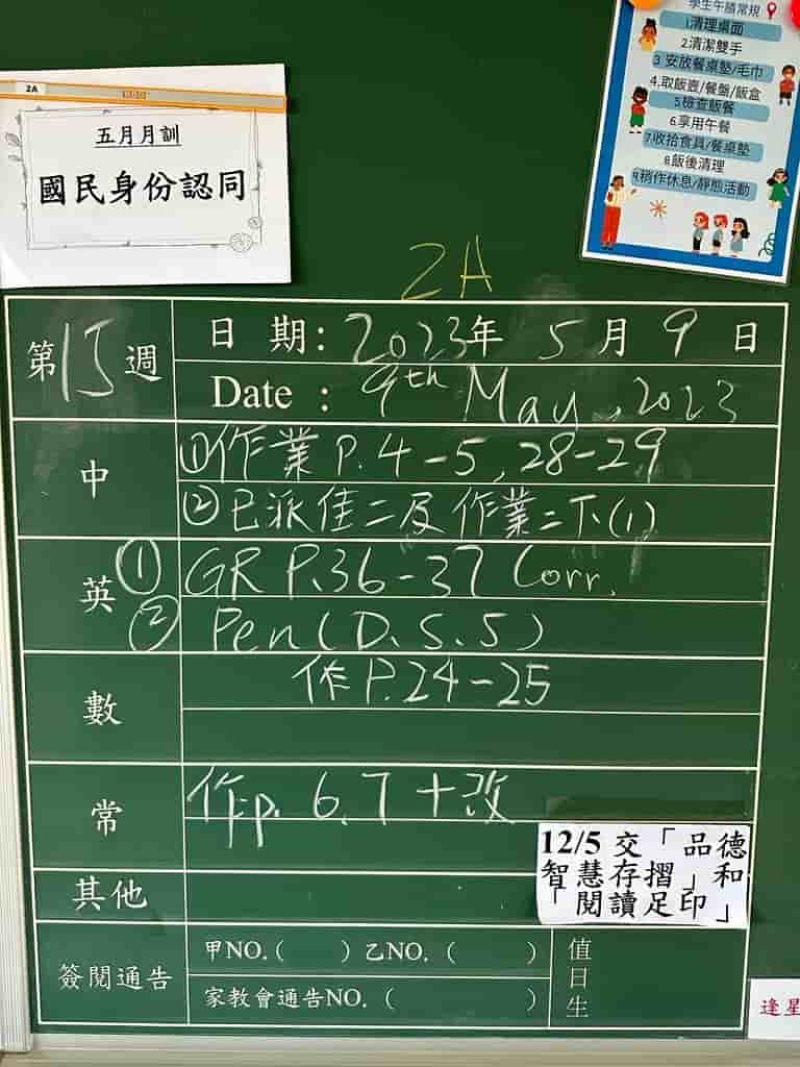 2A
五月月訓
國民身份認同
學生午膳常規
1.清理桌面
2.清潔雙手
3.安放餐桌墊/毛巾
4.取飯壼/餐盤/飯盒
5.檢查飯餐
6.享用午餐
7.收拾食具/餐桌墊
8.飯後清理
9.稍作休息/靜態活動
2A
第15週
日期:2023年5月9日
Date : 9th May, 2023
中
①作業 P.4-5, 28-29
②已派佳二及作業二下(1)
英
① GR P.36-37 Corr.
② Pen (D.S.5)
數
作 P.24-25
常
作p. 6, 7 + 改
12/5 交「品德
智慧存摺」和
「閱讀足印」
其他
簽閱通告
甲NO.( )乙NO.( )
家教會通告NO.( )
值日生
逢星